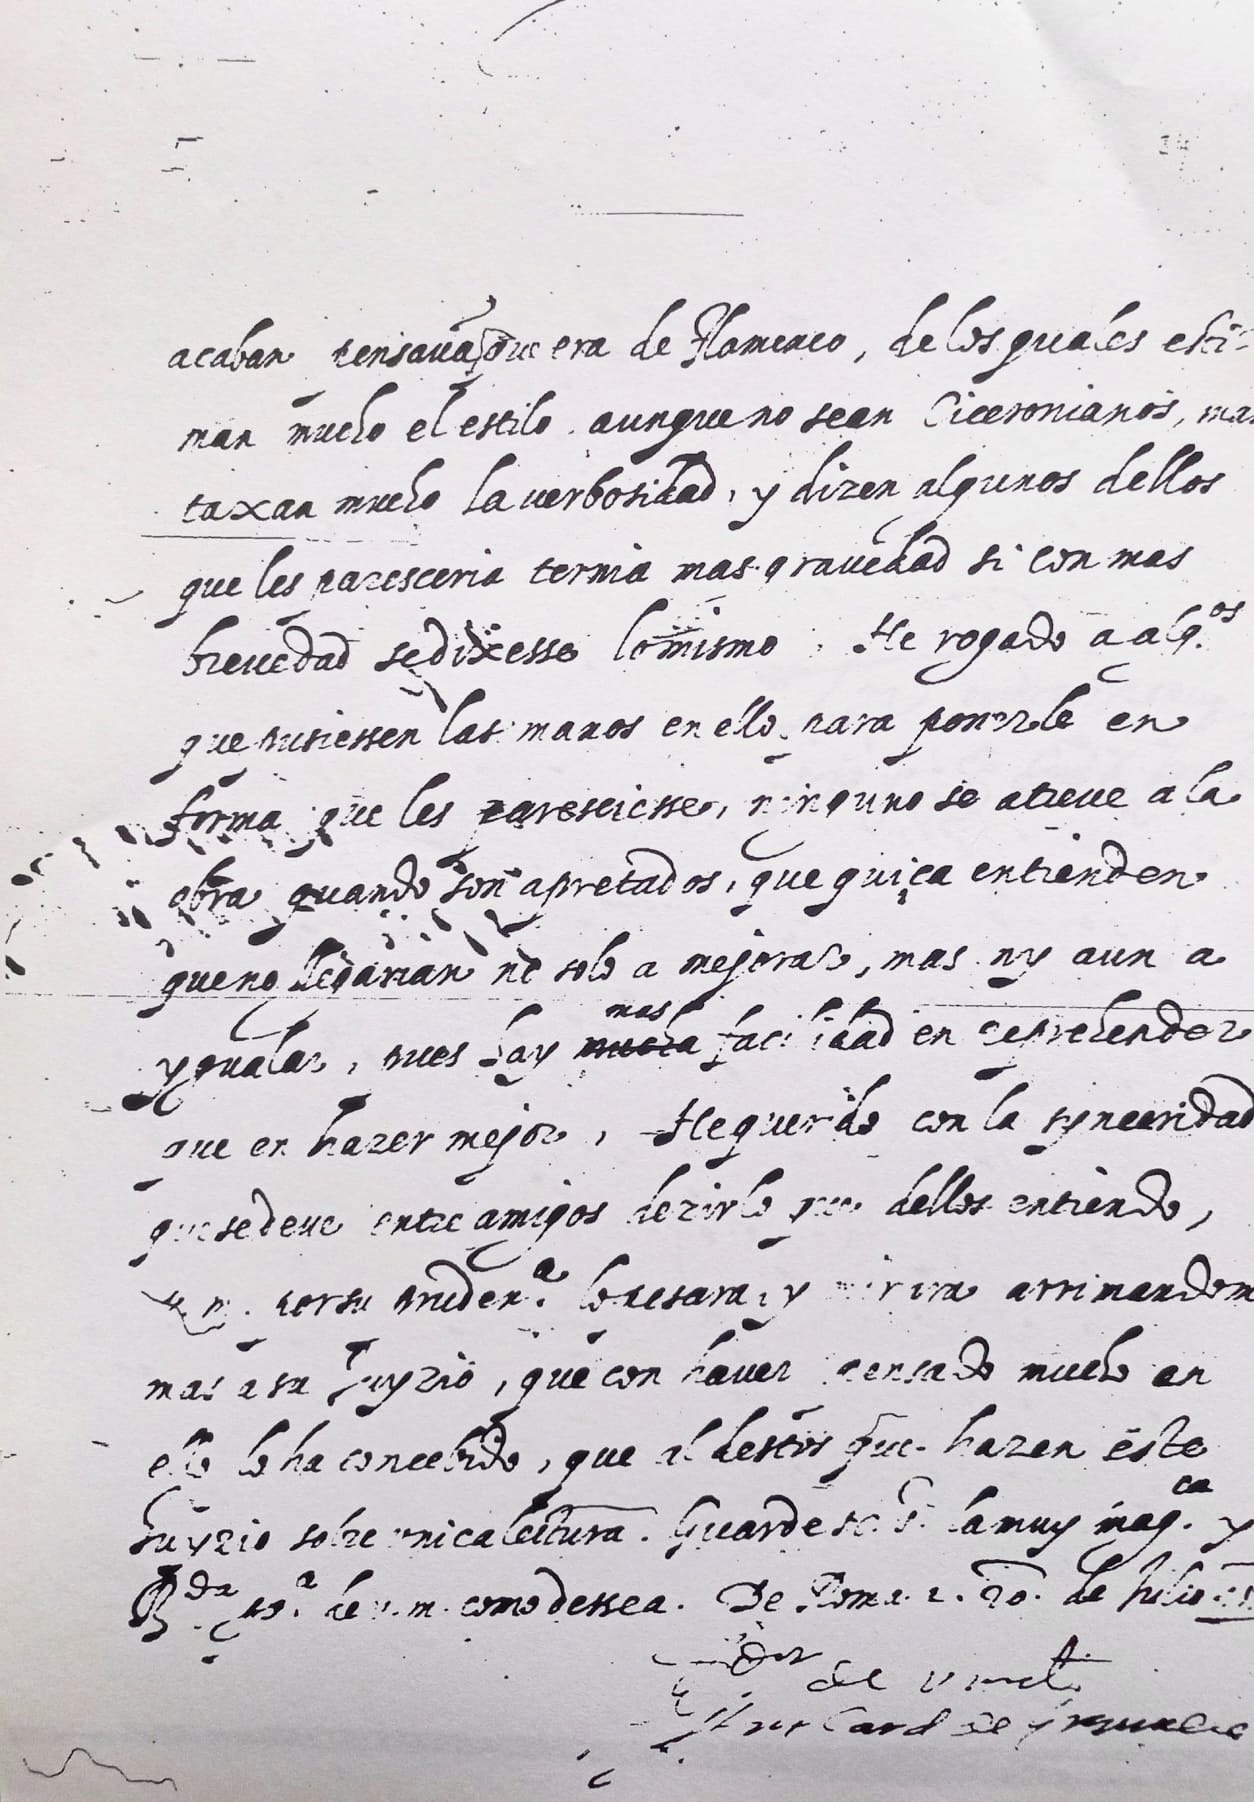 acaban pensava que era de Flamenco, de los quales esti-
man mucho el estilo. aunque no sean Ciceronianos, mas
taxan mucho la verbosidad, y dizen algunos dellos
que les paresceria ternia mas gravedad si con mas
brevedad se dixesse lo mismo. He rogado a alg.os
que pusiessen las manos en ello, para ponerle en
forma que les paresciesse, ninguno se atreve a la
obra quando son apretados, que quiça entienden
que no llegarian no solo a mejorar, mas ny aun a
ygualar, pues hay mas facilidad en reprehender
que en hazer mejor, He querido con la synceridad
que se deve entre amigos dezirlo que dellos entiendo,
v. m. por su pruden.a lo pesara, y mirara arrimandome
mas a su juyzio, que con haver pensado mucho en
ello lo ha concebido, que al destos que hazen este
juyzio sobre unica lectura. Guarde n. s. la muy mag.ca y
R.da p.a de v. m. como dessea. De Roma. a. 20. de Julio
de v. m.
Ant Card de